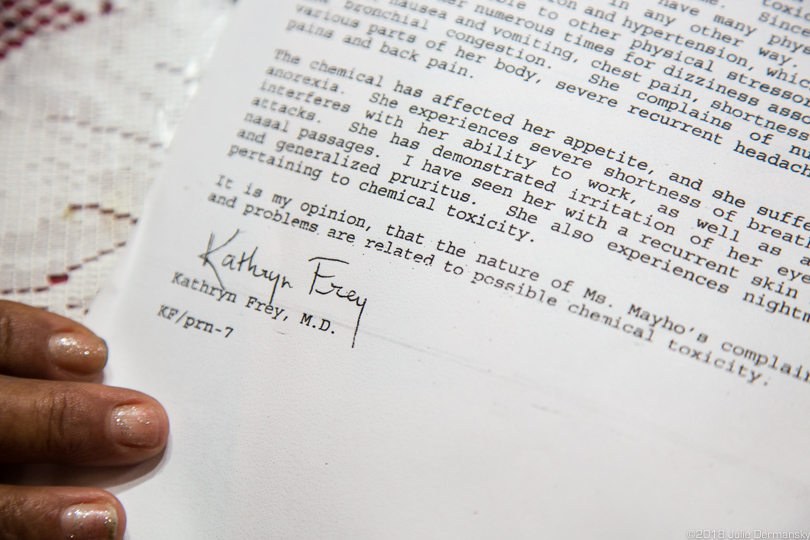 have many phy
in any other way. Since
ion and hypertension, whic
ble to other physical stresso
er numerous times for dizziness asso
nausea and vomiting, chest pain, shortness
bronchial congestion. She complains of nu
various parts of her body, severe recurrent headach
pains and back pain.
The chemical has affected her appetite, and she suffe
anorexia. She experiences severe shortness of breat
interferes with her ability to work, as well as a
attacks. She has demonstrated irritation of her eye
nasal passages. I have seen her with a recurrent skin
and generalized pruritus. She also experiences nightm
pertaining to chemical toxicity.
It is my opinion, that the nature of Ms. Mayho's complain
and problems are related to possible chemical toxicity.
Kathryn Frey
Kathryn Frey, M.D.
KF/prn-7
©2018 Julie Dermansky